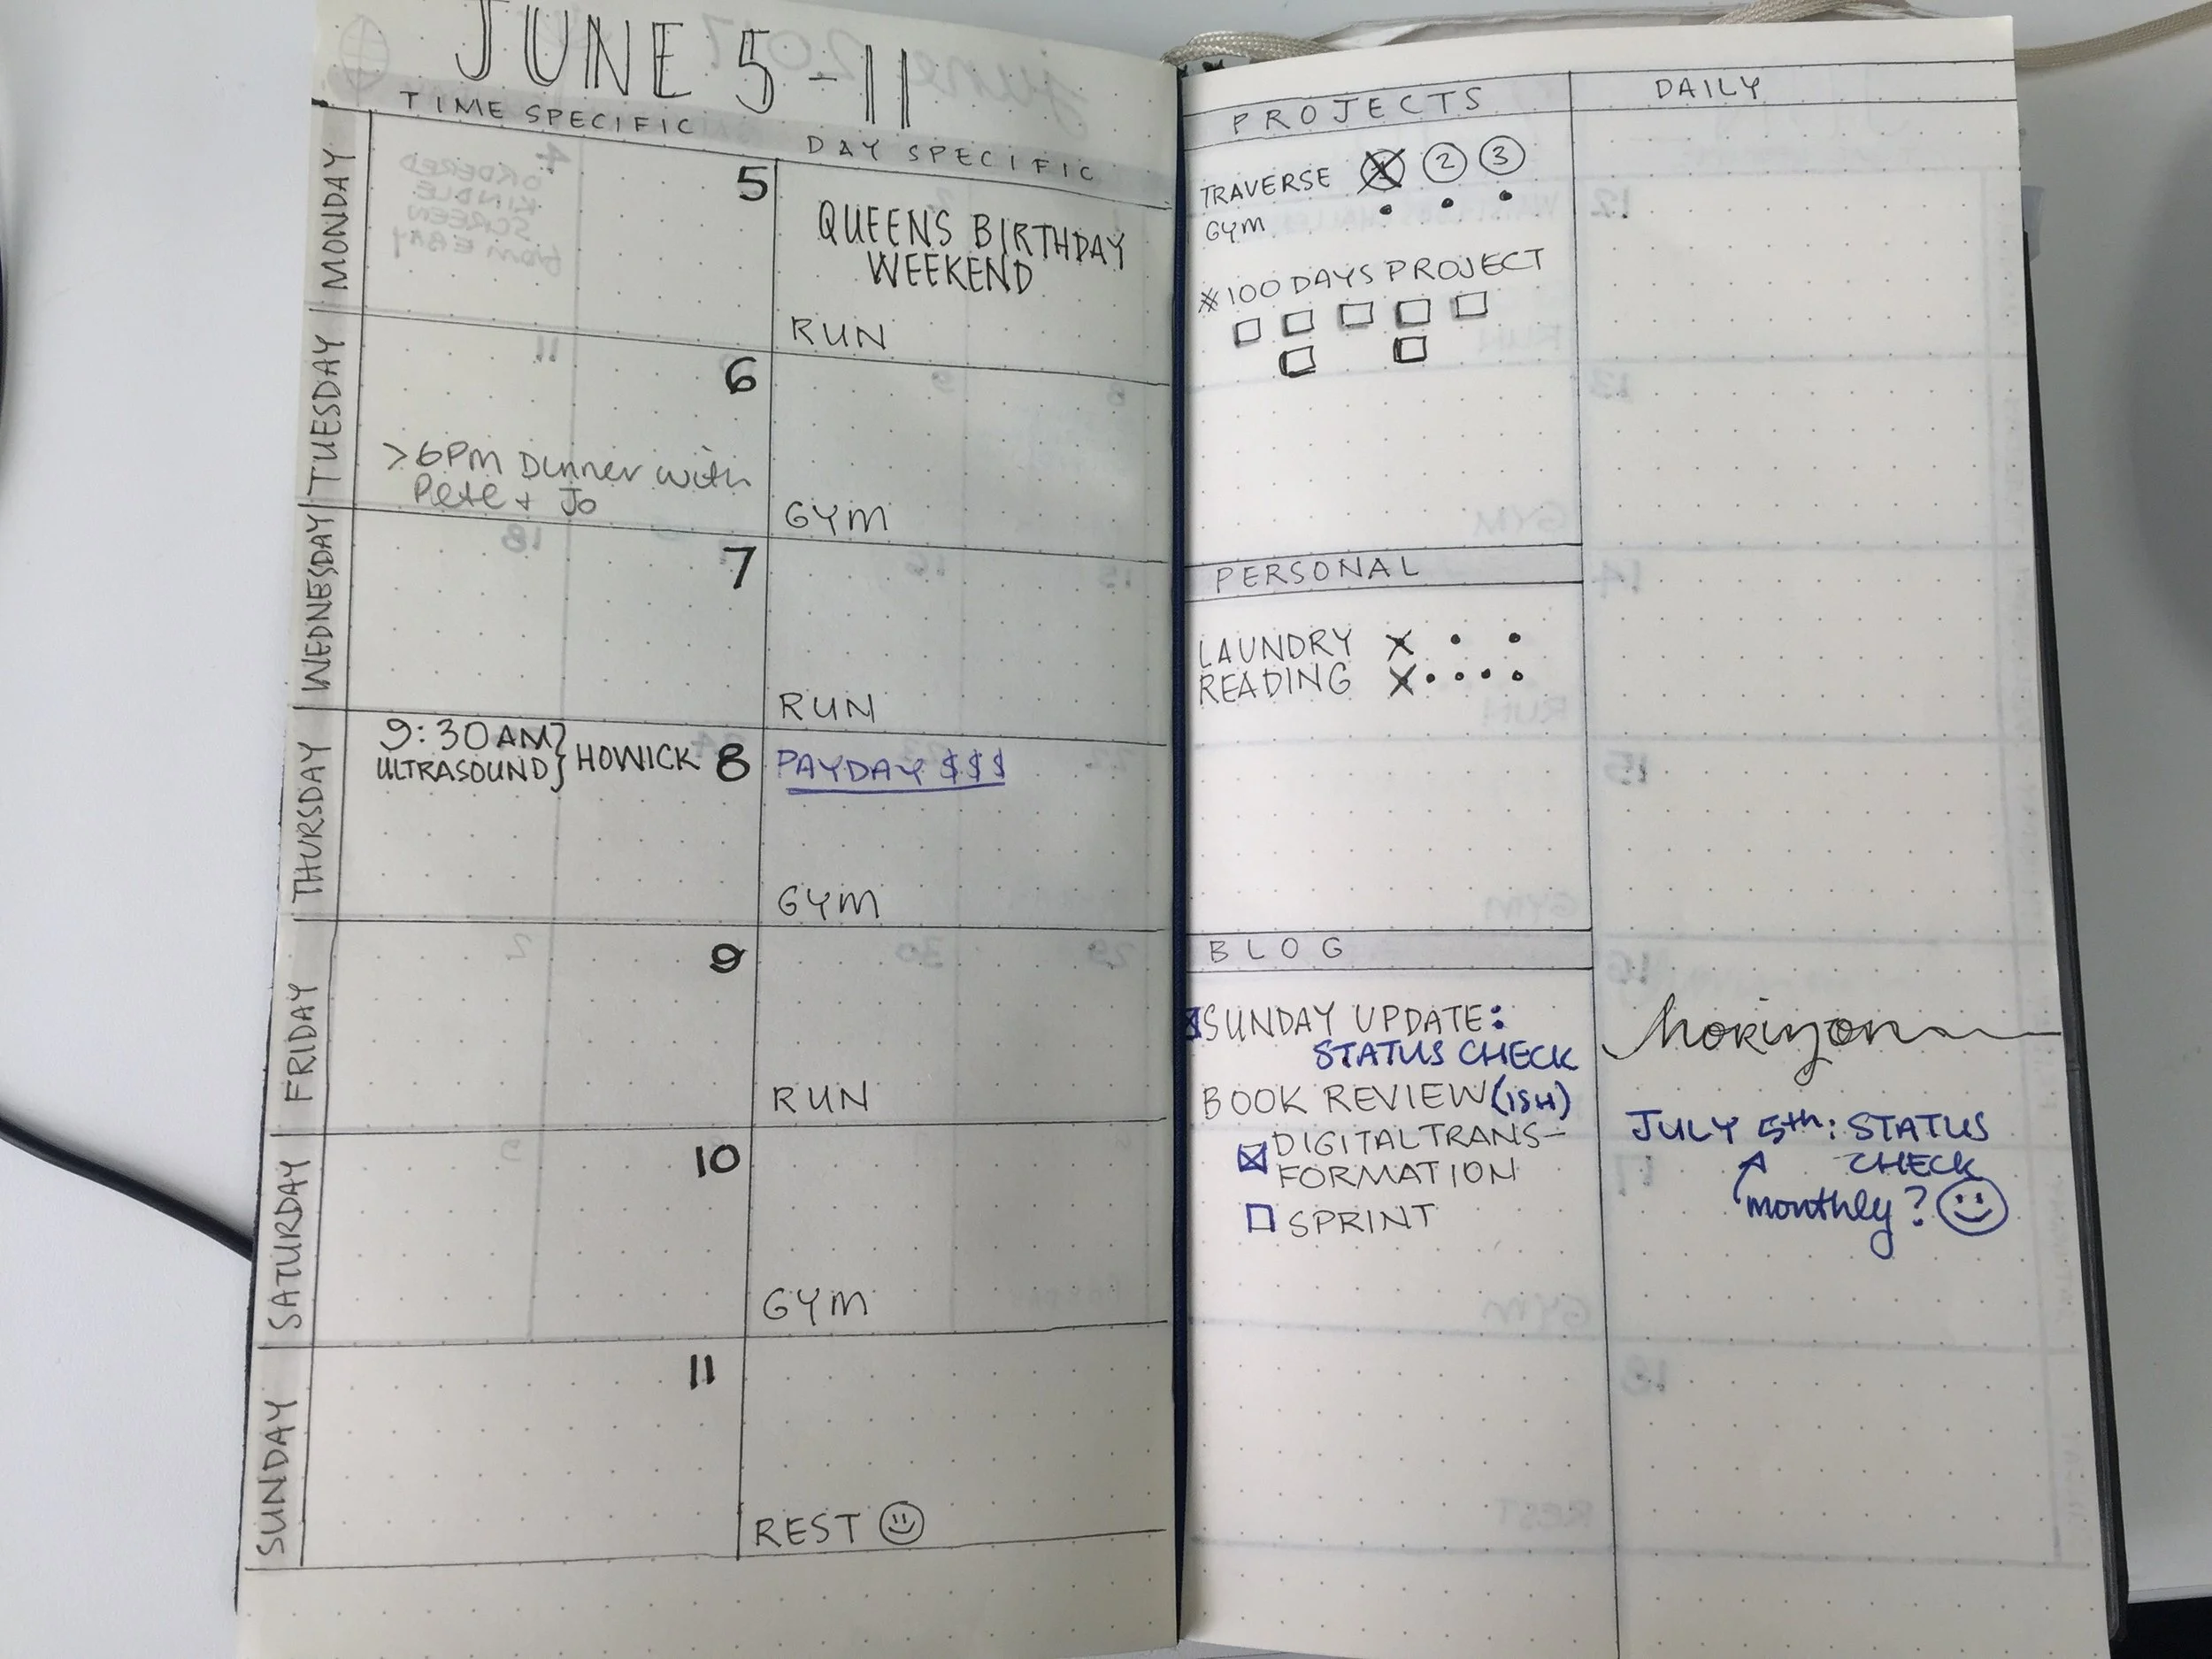 JUNE 5-11
TIME SPECIFIC
DAY SPECIFIC
MONDAY
5
QUEENS BIRTHDAY
WEEKEND
RUN
TUESDAY
6
>6PM Dinner with
Pete + Jo
GYM
WEDNESDAY
7
RUN
THURSDAY
9:30AM } HOWICK
ULTRASOUND
8
PAYDAY $$$
GYM
FRIDAY
9
RUN
SATURDAY
10
GYM
SUNDAY
11
REST
PROJECTS
TRAVERSE 1 2 3
GYM
#100 DAYS PROJECT
PERSONAL
LAUNDRY X • •
READING X • • • •
BLOG
SUNDAY UPDATE:
STATUS CHECK
BOOK REVIEW (ISH)
DIGITAL TRANS-
FORMATION
SPRINT
DAILY
horizon
JULY 5th: STATUS
CHECK
monthly?